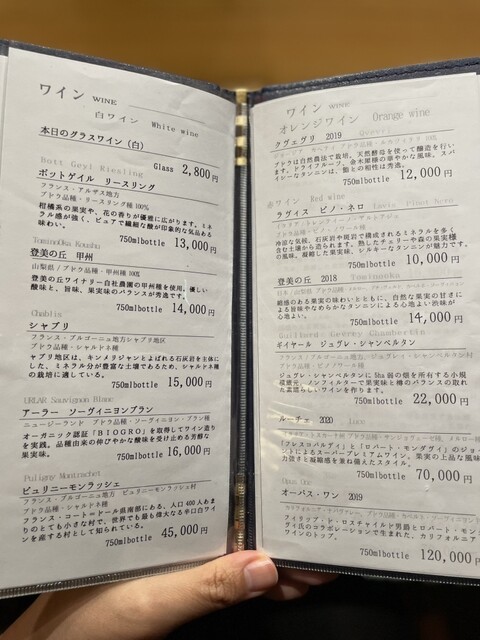 ワイン WINE
白ワイン White wine
本日のグラスワイン(白)
Glass 2,800円
Bott Geyl Riesling
ボットゲイル リースリング
フランス・アルザス地方
ブドウ品種・リースリング種 100%
柑橘系の果実や、花の香りが優雅に広がります。ミネ
ラル感が強く、ピュアで繊細な酸が印象的な気品ある
味わい。
750mlbottle 13,000円
TominoOka Koushu
登美の丘 甲州
山梨県/ブドウ品種・甲州種 100%
登美の丘ワイナリー自社農園の甲州種を使用。優しい
酸味と、旨味、果実味のバランスが秀逸です。
750mlbottle 14,000円
Chablis
シャブリ
フランス・ブルゴーニュ地方シャブリ地区
ブドウ品種・シャルドネ種
ャブリ地区は、キンメリジャンとよばれる石灰岩を主体に
した、ミネラル分が豊富な土壌であるため、シャルドネ種
の栽培に適している。
750mlbottle 15,000円
URLAR Sauvignon Blanc
アーラー ソーヴィニヨンブラン
ニュージーランド ブドウ品種・ソーヴィニヨン・ブラン種
オーガニック認証「BIOGRO」を取得してワイン造り
を実践。品種由来の伸びやかな酸味を受け止める芳醇な
果実味。
750mlbottle 16,000円
Puligny Montrachet
ピュリニーモンラッシェ
フランス・ブルゴーニュ地方 ピュリニーモンラッシェ村
ブドウ品種・シャルドネ種
フランス・コート=ドール県南部にある、人口400人あま
りのとても小さな村で、世界でも最も偉大なる辛口白ワイ
ンを産する村として知られている。
750mlbottle 45,000円
ワイン WINE
オレンジワイン Orange wine
クヴェヴリ 2019
ブドウは自然農法で栽培、天然酵母を使って醸造を行い
ます。ドライフルーツ、金木犀様の華やかな風味。スパ
イシーなタンニンは、鮨との相性は秀逸。
750mlbottle 12,000円
赤ワイン Red wine
ラヴィス ピノ・ネロ Lavis Pinot Nero
冷涼な気候、石灰岩や斑岩で構成されるミネラルを多く
含む土壌から造られます。熟したチェリーや森の果実様
の風味。凝縮した果実味、シルキーなタンニンが魅力です。
750mlbottle 10,000円
登美の丘 2018 Tominooka
緻密のある果実の味わいとともに、自然な果実の甘さに
よる旨味やなめらかなタンニンによる心地よい渋味が
心地よい。
750mlbottle 14,000円
ボイヤール ジュヴレ・シャンベルタン
フランス/ブルゴーニュ地方、ジュヴレイ・シャンベルタン村
ブドウ品種・ピノノワール種
ジュヴレ・シャンベルタンに5ha弱の畑を所有する小規
模蔵元。ノンフィルターで果実味と樽のバランスの取れ
た素晴らしいワインを作ります。
750mlbottle 22,000円
ルーチェ 2020 Luce
「フレスコバルディ」と「ロバート・モンダヴィ」のジョイ
ントによるスーパープレミアムワイン。果実の上品な風味、
力強さと凝縮感を兼ね備えたスタイル。
750mlbottle 70,000円
Opus One
オーパス・ワン 2019
フィリップ・ド・ロスチャイルド男爵とロバート・モンダ
ヴィ氏のコラボレーションで生まれた、カリフォルニア
ワインのトップ。
750mlbottle 120,000円